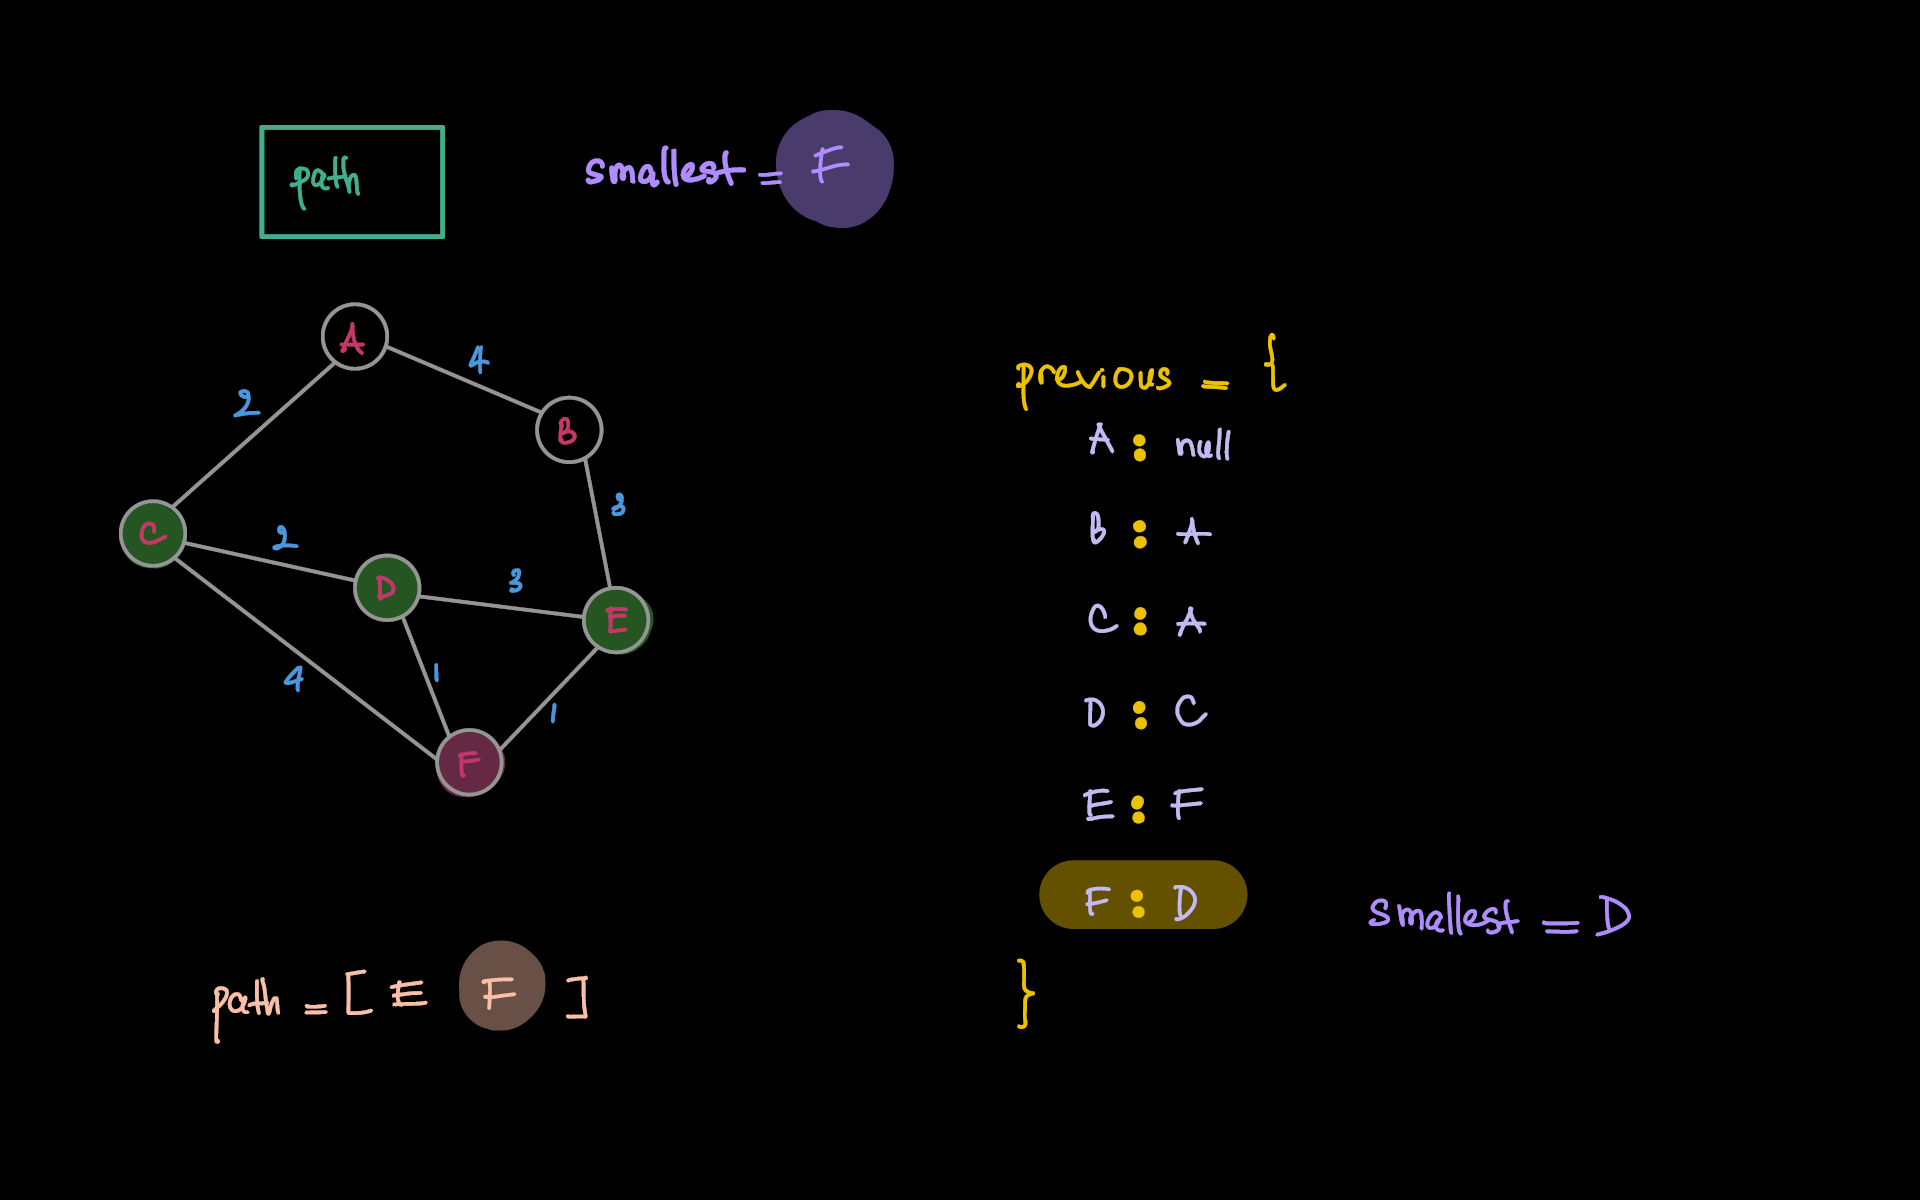 path
smallest = F
A
4
2
B
3
C
2
D
3
E
4
1
1
F
previous = {
A : null
B : A
C : A
D : C
E : F
F : D
smallest = D
}
path = [ E F ]